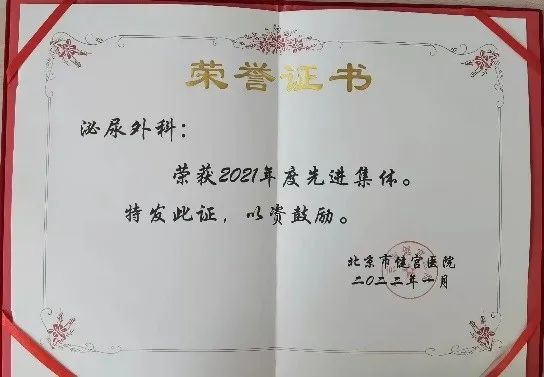 荣誉证书
泌尿外科：
荣获2021年度先进集体。
特发此证，以资鼓励。
北京市健宫医院
二〇二二年一月